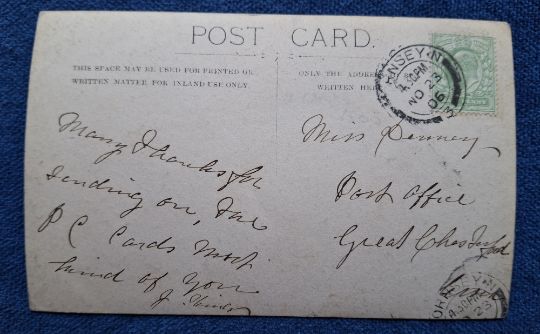 POST CARD.
THIS SPACE MAY BE USED FOR PRINTED OR
WRITTEN MATTER FOR INLAND USE ONLY.
ONLY THE ADDRESS
WRITTEN HERE
NSEY·N
4.30PM
NO 23
06
Many Thanks for
sending on, the
P C Cards most
kind of you
J.
Miss Penney
Post Office
Great Chesterford
4.30PM
23